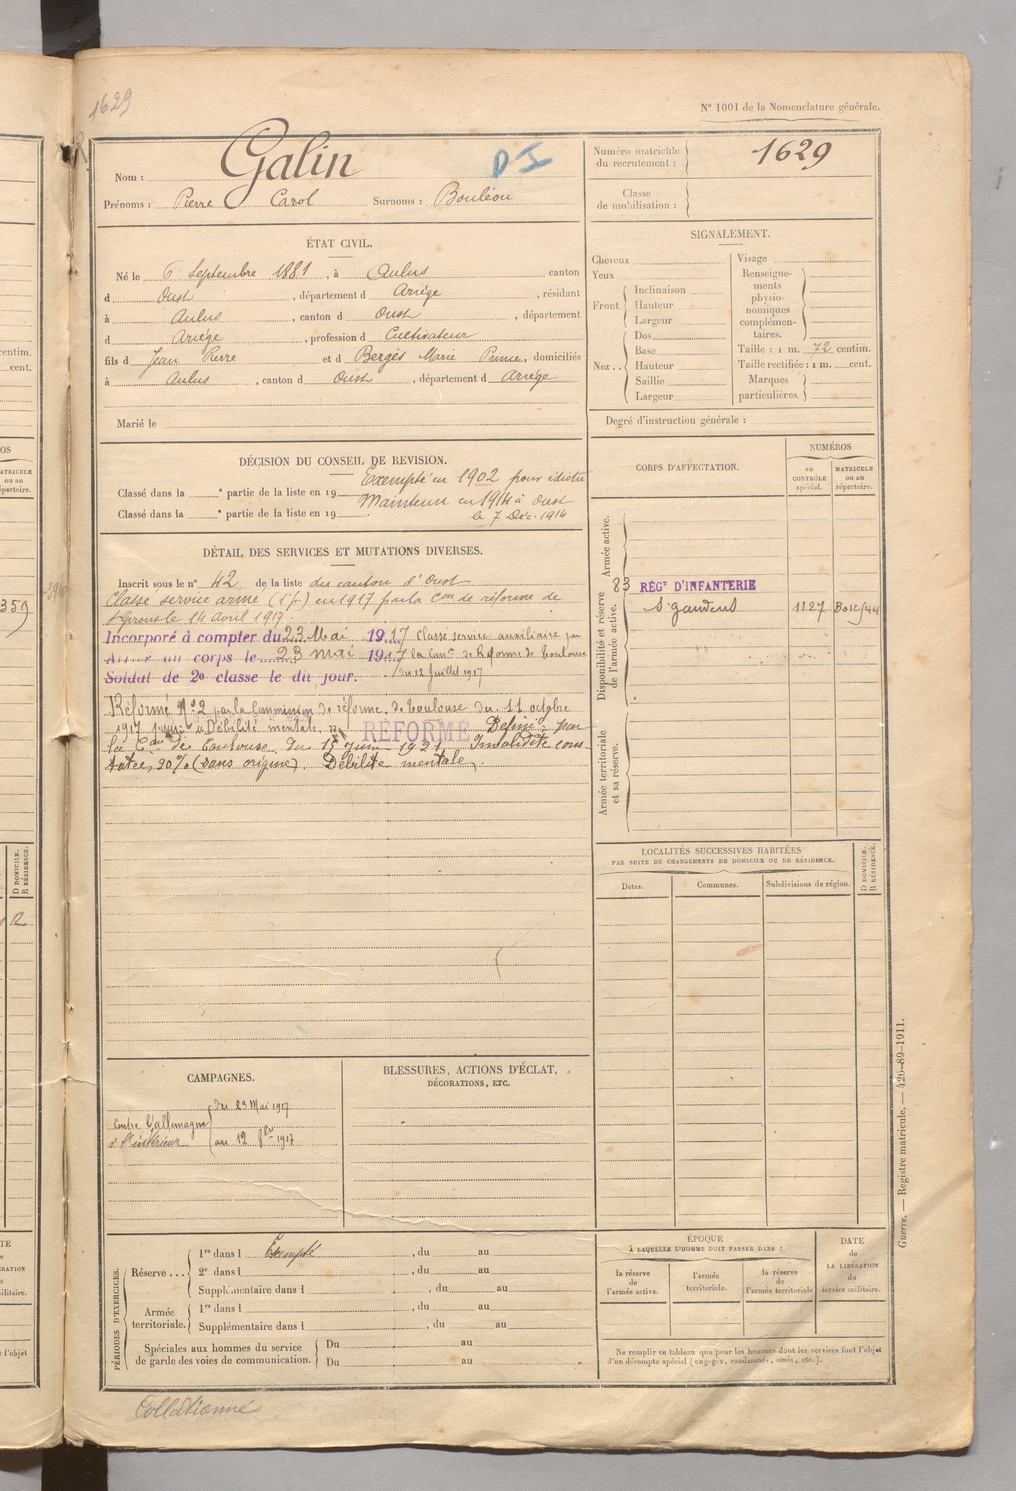 1629
N° 1001 de la Nomenclature générale.
Nom : Galin
DI
Prénoms : Pierre Carol Surnoms : Bouléou
Numéro matricule du recrutement : 1629
Classe de mobilisation :
ÉTAT CIVIL.
Né le 6 Septembre 1881, à Aulus canton
d Oust, département d Ariège, résidant
à Aulus, canton d Oust, département
d Ariége, profession d Cultivateur
fils d Jean Pierre et d Bergès Marie Prince, domiciliés
à Aulus, canton d Oust, département d Ariège
Marié le
SIGNALEMENT.
Cheveux
Yeux
Front. Inclinaison
Hauteur
Largeur
Nez.. Dos
Base
Hauteur
Saillie
Largeur
Visage
Renseignements physionomiques complémentaires.
Taille : 1 m. 72 centim.
Taille rectifiée : 1 m. cent.
Marques particulières.
Degré d'instruction générale :
DÉCISION DU CONSEIL DE REVISION.
Exempté en 1902 pour idiotie
Classé dans la e partie de la liste en 19
Maintenu en 1914 à Oust
Classé dans la e partie de la liste en 19
le 7 Déc. 1914
DÉTAIL DES SERVICES ET MUTATIONS DIVERSES.
Inscrit sous le n° 42 de la liste du canton d'Oust
Classé service armé (1 p.) en 1917 par la Con de réforme de
St Girons le 14 avril 1917.
Incorporé à compter du 23 Mai 1917 Classé service auxiliaire par
Arrivé au corps le 23 mai 1917 la Comon de Réforme de Toulouse
Soldat de 2e classe le dit jour. du 12 Juillet 1917
Réformé N° 2 par la Commission de réforme de Toulouse du 11 octobre
1917 pour Débilité mentale. RÉFORMÉ Définif par
la Con de Toulouse du 15 Juin 1921 Invalidité cons
tatée 90% (sans origine). Débilité mentale.
CORPS D'AFFECTATION.
NUMÉROS
au CONTRÔLE spécial.
MATRICULE ou au répertoire.
Disponibilité et réserve de l'armée active.
Armée active.
83 RÉGt D'INFANTERIE
St gaudens 1127
Armée territoriale et sa réserve.
LOCALITÉS SUCCESSIVES HABITÉES
PAR SUITE DE CHANGEMENTS DE DOMICILE OU DE RÉSIDENCE.
Dates. Communes. Subdivisions de région. D DOMICILE. R RÉSIDENCE.
CAMPAGNES.
Contre l'allemagne du 23 Mai 1917
à l'intérieur au 12 8bre 1917
BLESSURES, ACTIONS D'ÉCLAT,
DÉCORATIONS, ETC.
PÉRIODES D'EXERCICES.
Réserve... 1re dans l Exempté, du au
2e dans l, du au
Supplémentaire dans l, du au
Armée territoriale. 1re dans l, du au
Supplémentaire dans l, du au
Spéciales aux hommes du service de garde des voies de communication. Du au
Du au
ÉPOQUE
À LAQUELLE L'HOMME DOIT PASSER DANS :
la réserve de l'armée active.
l'armée territoriale.
la réserve de l'armée territoriale
DATE de LA LIBÉRATION du service militaire.
Ne remplir ce tableau que pour les hommes dont les services font l'objet
d'un décompte spécial (engagés, condamnés, omis, etc.).
Guerre. — Registre matricule. — 426-89-1911.
Collationné